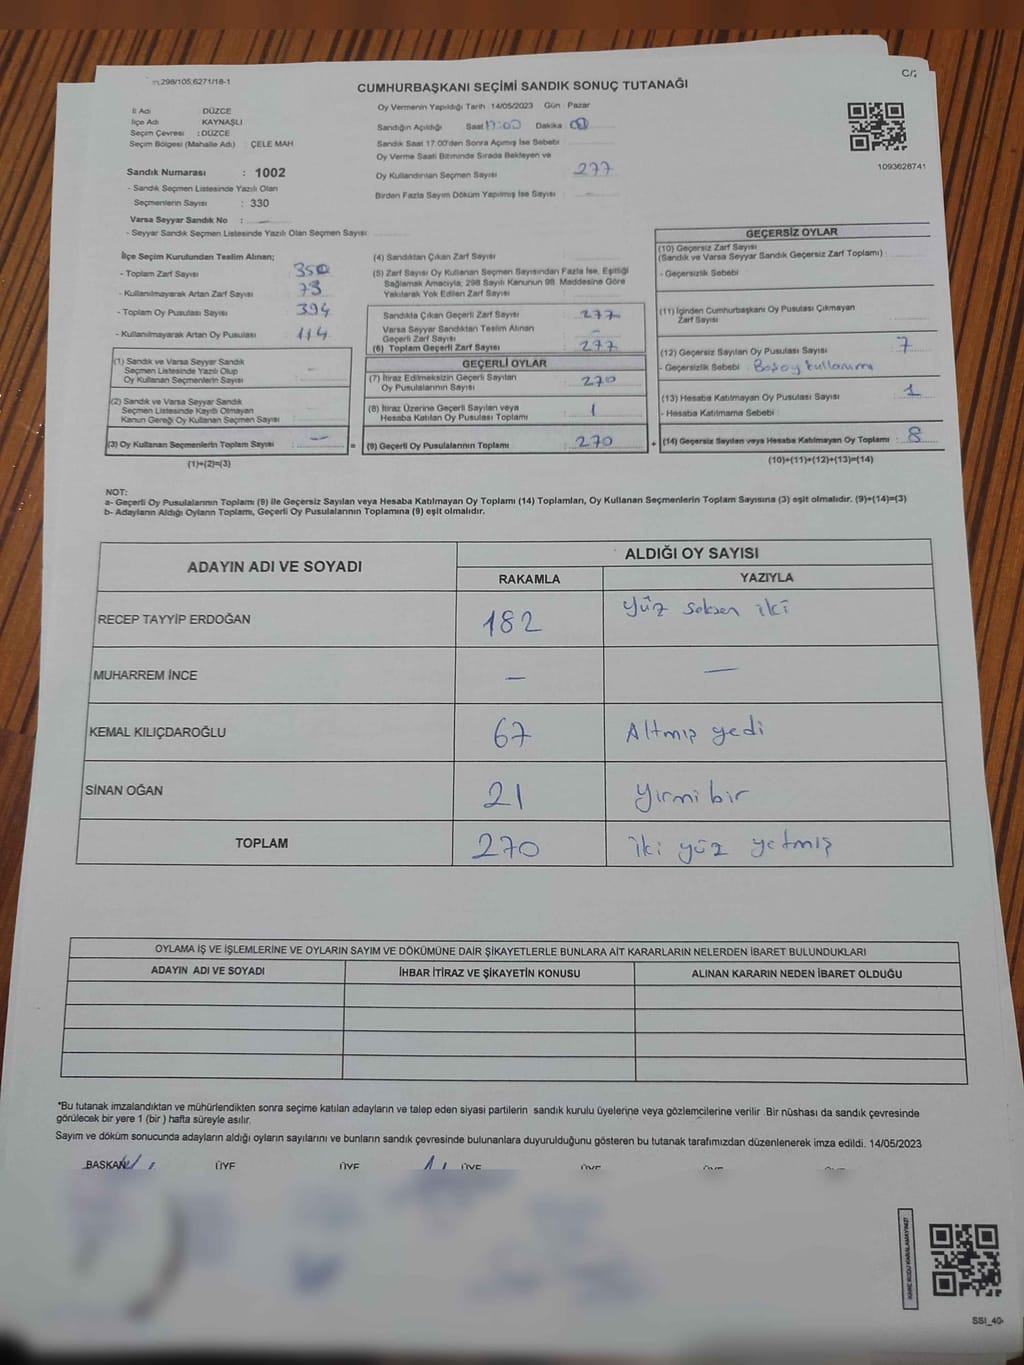 298/105;6271/18-1
C/2
CUMHURBAŞKANI SEÇİMİ SANDIK SONUÇ TUTANAĞI
İl Adı DÜZCE
İlçe Adı KAYNAŞLI
Seçim Çevresi : DÜZCE
Seçim Bölgesi (Mahalle Adı) : ÇELE MAH
Sandık Numarası : 1002
- Sandık Seçmen Listesinde Yazılı Olan
Seçmenlerin Sayısı : 330
Varsa Seyyar Sandık No :
- Seyyar Sandık Seçmen Listesinde Yazılı Olan Seçmen Sayısı
Oy Vermenin Yapıldığı Tarih 14/05/2023 Gün : Pazar
Sandığın Açıldığı Saat 17:00 Dakika
Sandık Saat 17:00'den Sonra Açılmış İse Sebebi
Oy Verme Saati Bitiminde Sırada Bekleyen ve
Oy Kullandırılan Seçmen Sayısı 277
Birden Fazla Sayım Döküm Yapılmış İse Sayısı –
1093628741
İlçe Seçim Kurulundan Teslim Alınan;
- Toplam Zarf Sayısı 350
- Kullanılmayarak Artan Zarf Sayısı 73
- Toplam Oy Pusulası Sayısı 394
- Kullanılmayarak Artan Oy Pusulası 114
(1) Sandık ve Varsa Seyyar Sandık
Seçmen Listesinde Yazılı Olup
Oy Kullanan Seçmenlerin Sayısı –
(2) Sandık ve Varsa Seyyar Sandık
Seçmen Listesinde Kayıtlı Olmayan
Kanun Gereği Oy Kullanan Seçmen Sayısı
(3) Oy Kullanan Seçmenlerin Toplam Sayısı : –
(1)+(2)=(3)
(4) Sandıktan Çıkan Zarf Sayısı :
(5) Zarf Sayısı Oy Kullanan Seçmen Sayısından Fazla İse, Eşitliği
Sağlamak Amacıyla; 298 Sayılı Kanunun 98. Maddesine Göre
Yakılarak Yok Edilen Zarf Sayısı
Sandıkta Çıkan Geçerli Zarf Sayısı : 277
Varsa Seyyar Sandıktan Teslim Alınan
Geçerli Zarf Sayısı –
(6) Toplam Geçerli Zarf Sayısı : 277
GEÇERLİ OYLAR
(7) İtiraz Edilmeksizin Geçerli Sayılan
Oy Pusulalarının Sayısı 270
(8) İtiraz Üzerine Geçerli Sayılan veya
Hesaba Katılan Oy Pusulası Toplamı : 1
= (9) Geçerli Oy Pusulalarının Toplamı : 270 +
GEÇERSİZ OYLAR
(10) Geçersiz Zarf Sayısı
(Sandık ve Varsa Seyyar Sandık Geçersiz Zarf Toplamı) :
- Geçersizlik Sebebi
(11) İçinden Cumhurbaşkanı Oy Pusulası Çıkmayan
Zarf Sayısı
(12) Geçersiz Sayılan Oy Pusulası Sayısı : 7
- Geçersizlik Sebebi : Boşoy kullanımı
(13) Hesaba Katılmayan Oy Pusulası Sayısı : 1
- Hesaba Katılmama Sebebi :
(14) Geçersiz Sayılan veya Hesaba Katılmayan Oy Toplamı : 8
(10)+(11)+(12)+(13)=(14)
NOT:
a- Geçerli Oy Pusulalarının Toplamı (9) ile Geçersiz Sayılan veya Hesaba Katılmayan Oy Toplamı (14) Toplamları, Oy Kullanan Seçmenlerin Toplam Sayısına (3) eşit olmalıdır. (9)+(14)=(3)
b- Adayların Aldığı Oyların Toplamı, Geçerli Oy Pusulalarının Toplamına (9) eşit olmalıdır.
ADAYIN ADI VE SOYADI ALDIĞI OY SAYISI
RAKAMLA YAZIYLA
RECEP TAYYİP ERDOĞAN 182 yüz seksen iki
MUHARREM İNCE – –
KEMAL KILIÇDAROĞLU 67 Altmış yedi
SİNAN OĞAN 21 yirmi bir
TOPLAM 270 iki yüz yetmiş
OYLAMA İŞ VE İŞLEMLERİNE VE OYLARIN SAYIM VE DÖKÜMÜNE DAİR ŞİKAYETLERLE BUNLARA AİT KARARLARIN NELERDEN İBARET BULUNDUKLARI
ADAYIN ADI VE SOYADI İHBAR İTİRAZ VE ŞİKAYETİN KONUSU ALINAN KARARIN NEDEN İBARET OLDUĞU
*Bu tutanak imzalandıktan ve mühürlendikten sonra seçime katılan adayların ve talep eden siyasi partilerin sandık kurulu üyelerine veya gözlemcilerine verilir. Bir nüshası da sandık çevresinde
görülecek bir yere 1 (bir) hafta süreyle asılır.
Sayım ve döküm sonucunda adayların aldığı oyların sayılarını ve bunların sandık çevresinde bulunanlara duyurulduğunu gösteren bu tutanak tarafımızdan düzenlenerek imza edildi. 14/05/2023
BAŞKAN ÜYE ÜYE ÜYE ÜYE ÜYE
KARE KODU KARALAMAYINIZ!
SSI_40